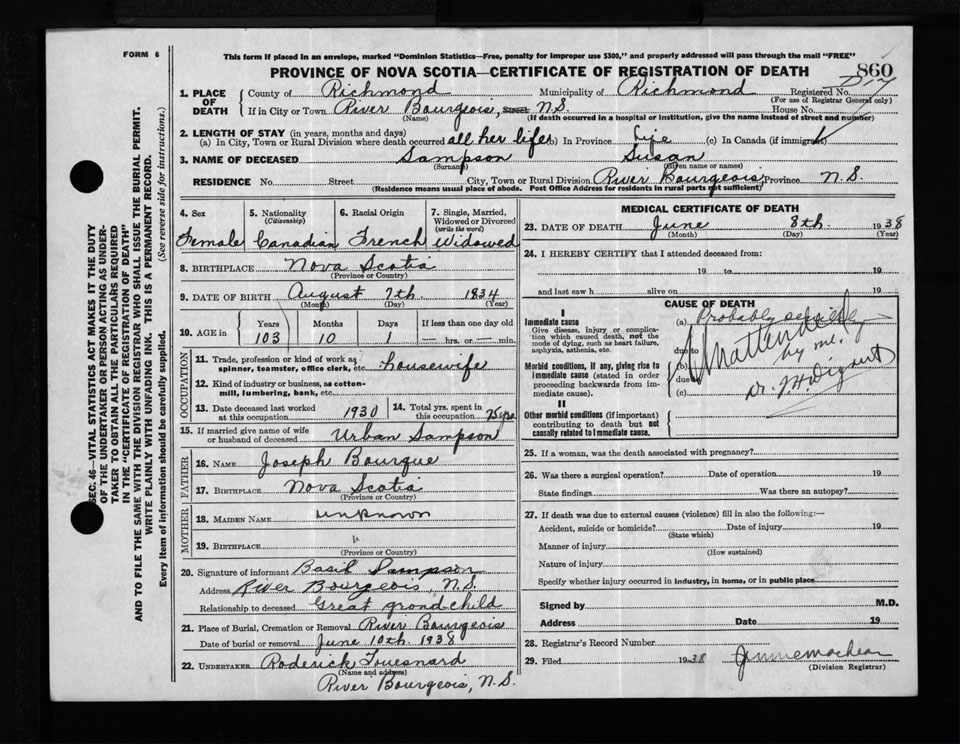 FORM 6
This form if placed in an envelope, marked "Dominion Statistics—Free, penalty for improper use $300," and properly addressed will pass through the mail "FREE"
PROVINCE OF NOVA SCOTIA—CERTIFICATE OF REGISTRATION OF DEATH
860
1. PLACE OF DEATH
County of Richmond Municipality of Richmond Registered No.
(For use of Registrar General only)
If in City or Town River Bourgeois, Street N.S. House No.
(Name) (If death occurred in a hospital or institution, give the name instead of street and number)
2. LENGTH OF STAY (in years, months and days)
(a) In City, Town or Rural Division where death occurred all her life (b) In Province Life (c) In Canada (if immigrant)
3. NAME OF DECEASED Sampson Susan
(Surname) (Given name or names)
RESIDENCE No. Street City, Town or Rural Division River Bourgeois Province N.S.
(Residence means usual place of abode. Post Office Address for residents in rural parts not sufficient)
SEC. 46—VITAL STATISTICS ACT MAKES IT THE DUTY
OF THE UNDERTAKER OR PERSON ACTING AS UNDER-
TAKER TO OBTAIN ALL THE PARTICULARS REQUIRED
IN THE "CERTIFICATE OF REGISTRATION OF DEATH"
AND TO FILE THE SAME WITH THE DIVISION REGISTRAR WHO SHALL ISSUE THE BURIAL PERMIT.
WRITE PLAINLY WITH UNFADING INK. THIS IS A PERMANENT RECORD.
Every item of information should be carefully supplied. (See reverse side for instructions.)
4. Sex
Female
5. Nationality
(Citizenship)
Canadian
6. Racial Origin
French
7. Single, Married,
Widowed or Divorced
(write the word)
Widowed
8. BIRTHPLACE Nova Scotia
(Province or Country)
9. DATE OF BIRTH August 7th. 1834
(Month) (Day) (Year)
10. AGE in
Years Months Days If less than one day old
103 10 1 — hrs. or — min.
OCCUPATION
11. Trade, profession or kind of work as
spinner, teamster, office clerk, etc. housewife
12. Kind of industry or business, as cotton-
mill, lumbering, bank, etc.
13. Date deceased last worked
at this occupation 1930
14. Total yrs. spent in
this occupation 75 yrs.
15. If married give name of wife
or husband of deceased Urban Sampson
FATHER
16. NAME Joseph Bourque
17. BIRTHPLACE Nova Scotia
(Province or Country)
MOTHER
18. MAIDEN NAME unknown
19. BIRTHPLACE "
(Province or Country)
20. Signature of informant Basil Sampson
Address River Bourgeois, N.S.
Relationship to deceased Great grand child
21. Place of Burial, Cremation or Removal River Bourgeois
Date of burial or removal June 10th. 1938
22. UNDERTAKER Roderick Touesnard
(Name and address)
River Bourgeois, N.S.
MEDICAL CERTIFICATE OF DEATH
23. DATE OF DEATH June 8th. 1938
(Month) (Day) (Year)
24. I HEREBY CERTIFY that I attended deceased from:
19 to 19
and last saw h alive on 19
CAUSE OF DEATH
I
Immediate cause
Give disease, injury or complica-
tion which caused death, not the
mode of dying, such as heart failure,
asphyxia, asthenia, etc.
(a) Probably senility
due to
Morbid conditions, if any, giving rise to
immediate cause (stated in order
proceeding backwards from im-
mediate cause).
(b)
due to
(c)
Unattended
by me.
Dr. J.H.
II
Other morbid conditions (if important)
contributing to death but not
causally related to immediate cause.
25. If a woman, was the death associated with pregnancy?
26. Was there a surgical operation? Date of operation 19
State findings Was there an autopsy?
27. If death was due to external causes (violence) fill in also the following:—
Accident, suicide or homicide? Date of injury 19
(State which)
Manner of injury
(How sustained)
Nature of injury
Specify whether injury occurred in industry, in home, or in public place
Signed by M.D.
Address Date 19
28. Registrar's Record Number
29. Filed 1938
(Division Registrar)